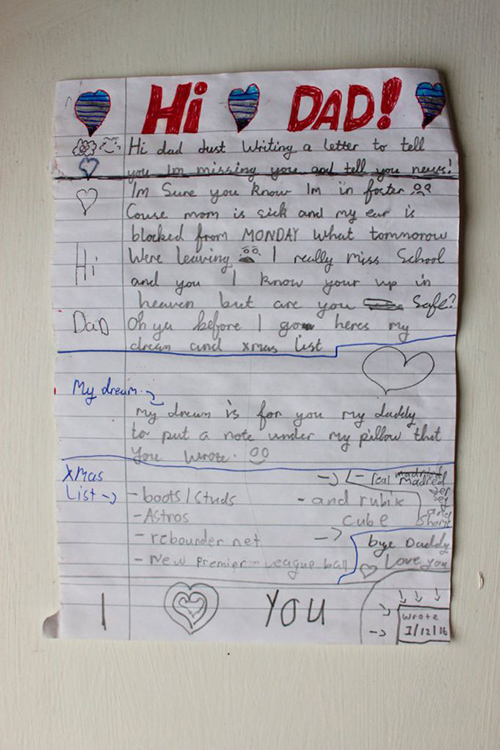 Hi DAD!
Hi dad Just Writing a letter to tell
you Im missing you and tell you news!
'Im Sure you know Im in foster
Couse mom is sick and my ear is
blocked from MONDAY What tommorow
Hi
Were leaving I really miss School
and you I know your up in
heaven but are you Safe?
Dad
Oh ya before I go heres my
dream and xmas List
My dream
my dream is for you my daddy
to put a note under my pillow that
you wrote.
Xmas
List →
- boots/studs
- Astros
- rebounder net
- New Premier-League ball
→ - real madrid
- and rubix
cube →
bye Daddy
Love you
I YOU
wrote
1/12/16